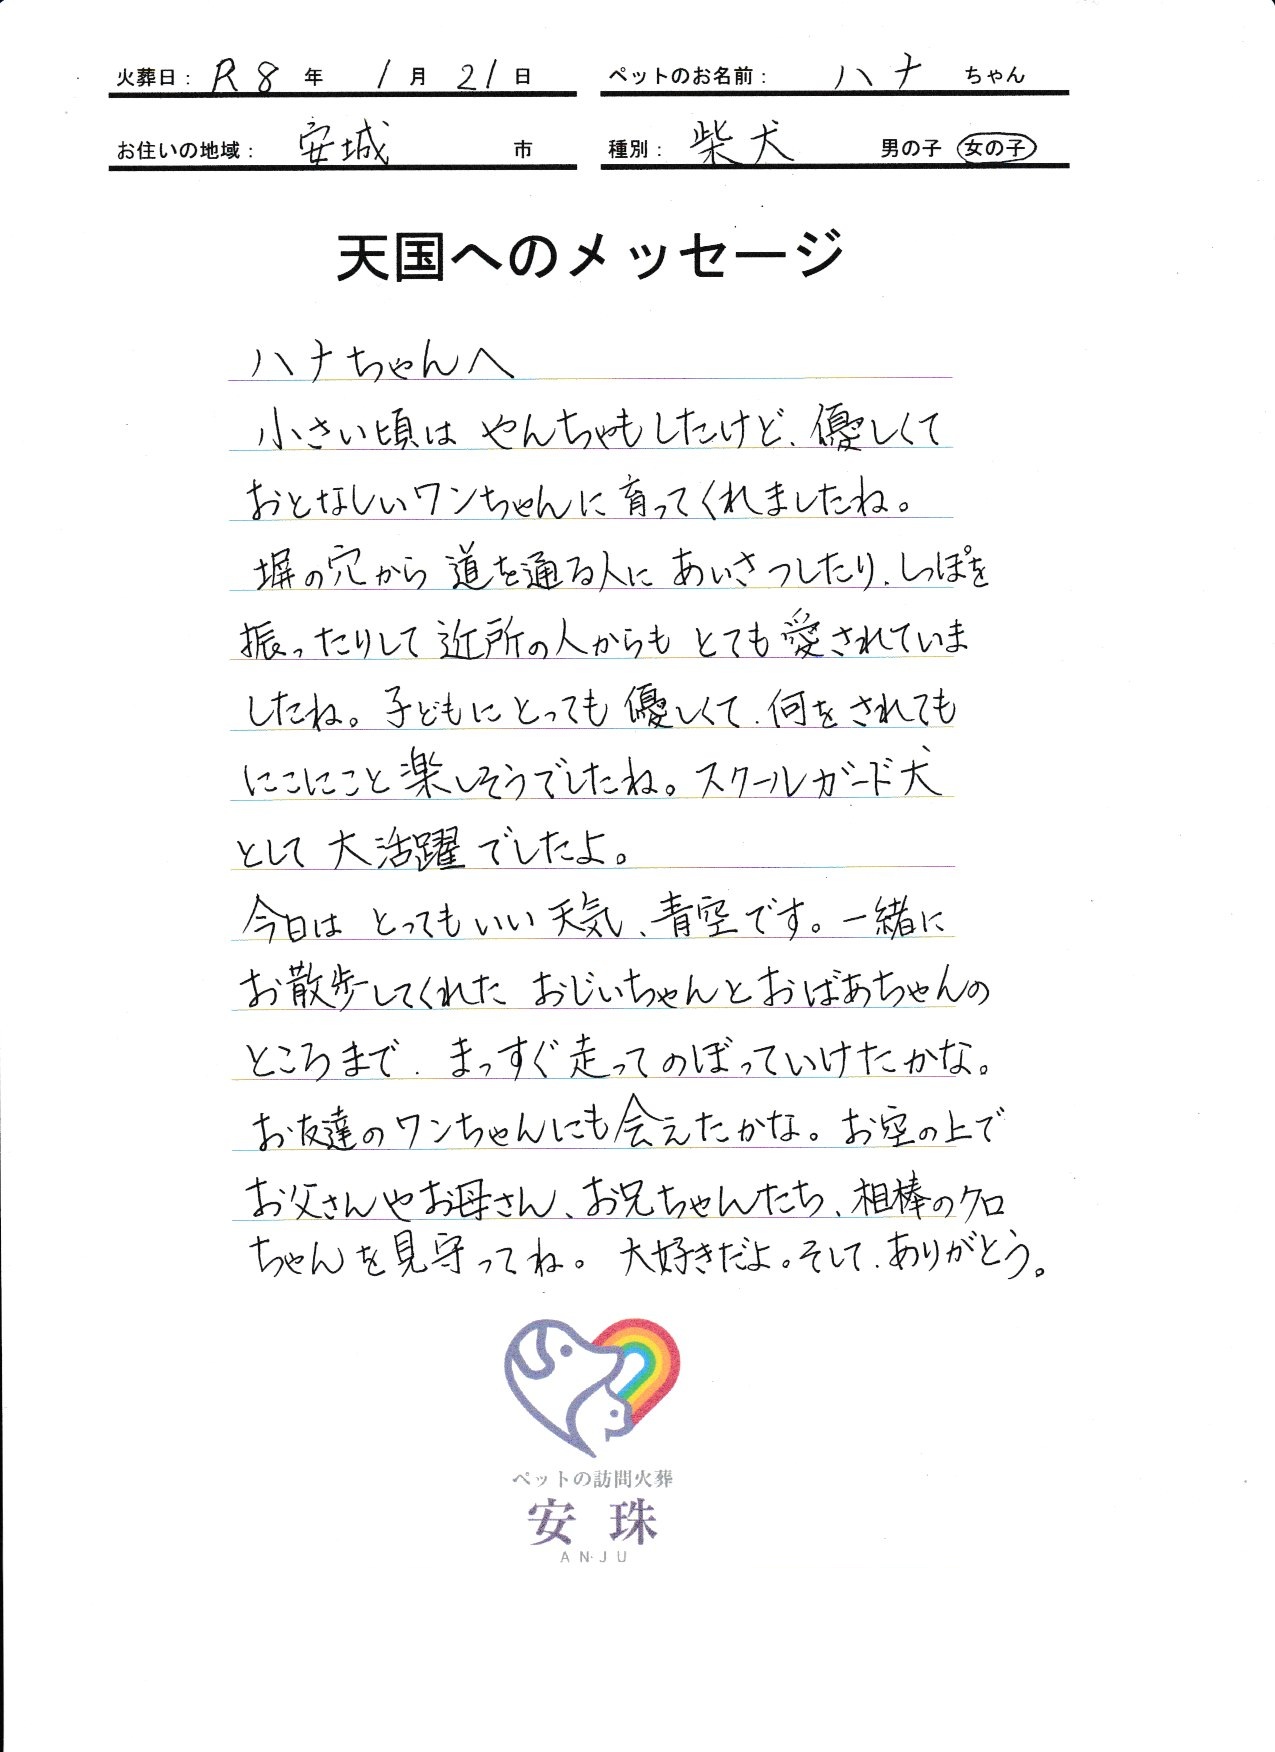 火葬日： R8 年 1 月 21 日 ペットのお名前： ハナ ちゃん
お住いの地域： 安城 市 種別： 柴犬 男の子 女の子
天国へのメッセージ
ハナちゃんへ
小さい頃は やんちゃもしたけど、優しくて
おとなしいワンちゃんに育ってくれましたね。
塀の穴から 道を通る人に あいさつしたり、しっぽを
振ったりして 近所の人からも とても愛されていま
したね。子どもにとっても 優しくて、何をされても
にこにこと楽しそうでしたね。スクールガード犬
として 大活躍でしたよ。
今日は とってもいい天気、青空です。一緒に
お散歩してくれた おじいちゃんとおばあちゃんの
ところまで、まっすぐ走ってのぼっていけたかな。
お友達のワンちゃんにも会えたかな。お空の上で
お父さんやお母さん、お兄ちゃんたち、相棒のクロ
ちゃんを見守ってね。 大好きだよ。そして、ありがとう。
ペットの訪問火葬
安珠
ANJU